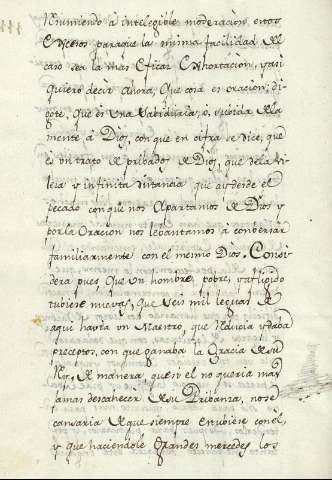 reduciendo à inteligible moderacion, estos
excesos para que la misma facilidad del
caso sea la más eficaz exhortación, y asi
quiero decir ahora, Que cosa es oracion, di-
gote, que es una sabiduria, ò, subida de la
mente, à Dios, con que en cifra se dice, que
es un trato de pribados de Dios, que de la vi-
leza y infinita distancia que ay desde el
pecado con que nos Apartamos de Dios y
por la Oracion nos levantamos à conversar
familiarmente con el mismo Dios. Consi-
dera pues, Que un hombre, pobre, y afligido
tubiese nuevas, Que seis mil leguas de
aqui havia un Maestro, que y daba
preceptos, con que ganaba la Gracia de su
Rey, de manera, que si el no queria mas
jamas descahecer de su Pribanza, no se
cansaria de que siempre estubiese con el,
y que haciendole Grandes mercedes los